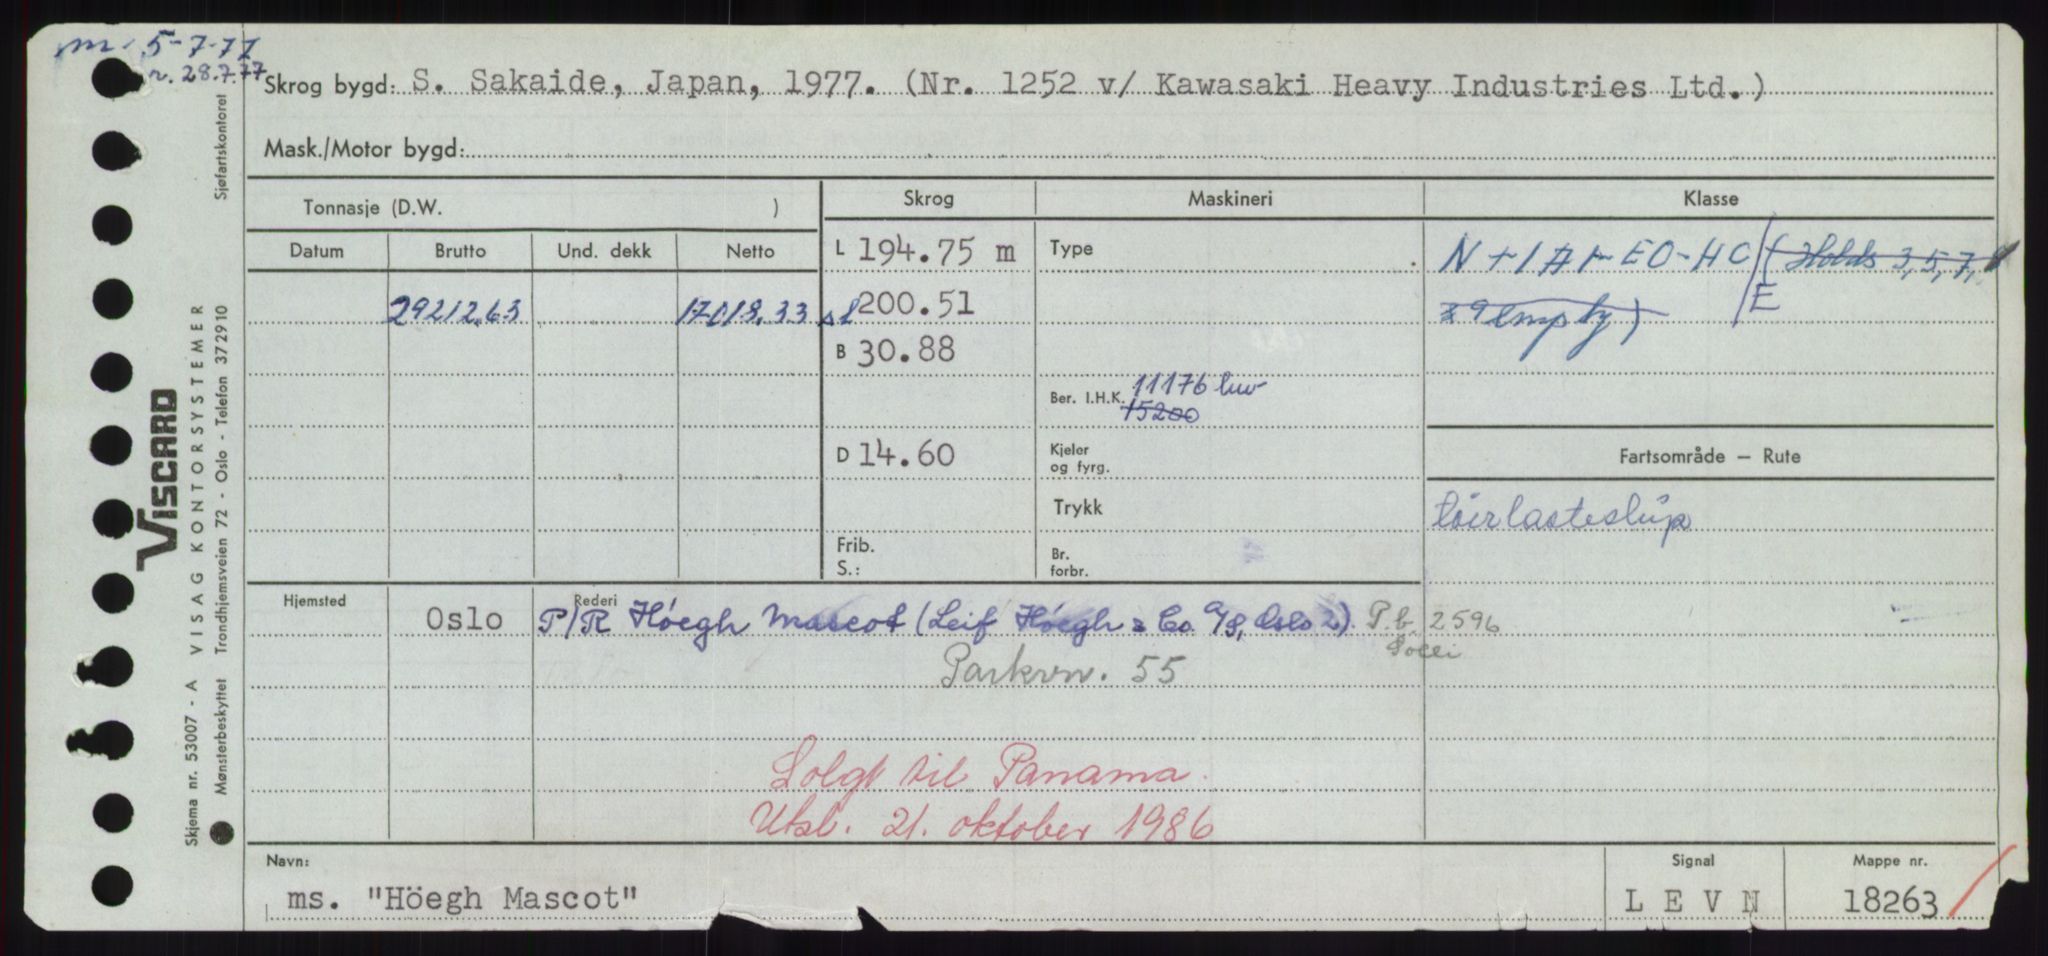 m. 5-7-77
r. 28.7.77
Skrog bygd: S. Sakaide, Japan, 1977. (Nr. 1252 v/ Kawasaki Heavy Industries Ltd.)
Mask./Motor bygd:
Tonnasje (D.W. )
Skrog Maskineri Klasse
Datum Brutto Und. dekk Netto
L 194.75 m Type
29212,63 17018,33
sl 200.51
N+1A1-EO-HC/E (Holds 3,5,7,
& 9 empty)
B 30.88
Ber. I.H.K. 11176 kw
15200
D 14.60
Kjeler og fyrg.
Fartsområde – Rute
Trykk
tørrlasteskip
Frib. S.:
Br. forbr.
Hjemsted Oslo
Rederi P/R Höegh Mascot (Leif Höegh & Co. A/S, Oslo 2) P.b. 2596
Solli
Parkvn. 55
Solgt til Panama.
Utsl. 21. oktober 1986
Navn: ms. "Höegh Mascot"
Signal LEVN
Mappe nr. 18263
VISCARD
Skjema nr. 53007 - A VISAG KONTORSYSTEMER Sjøfartskontoret
Mønsterbeskyttet Trondhjemsveien 72 - Oslo - Telefon 372910